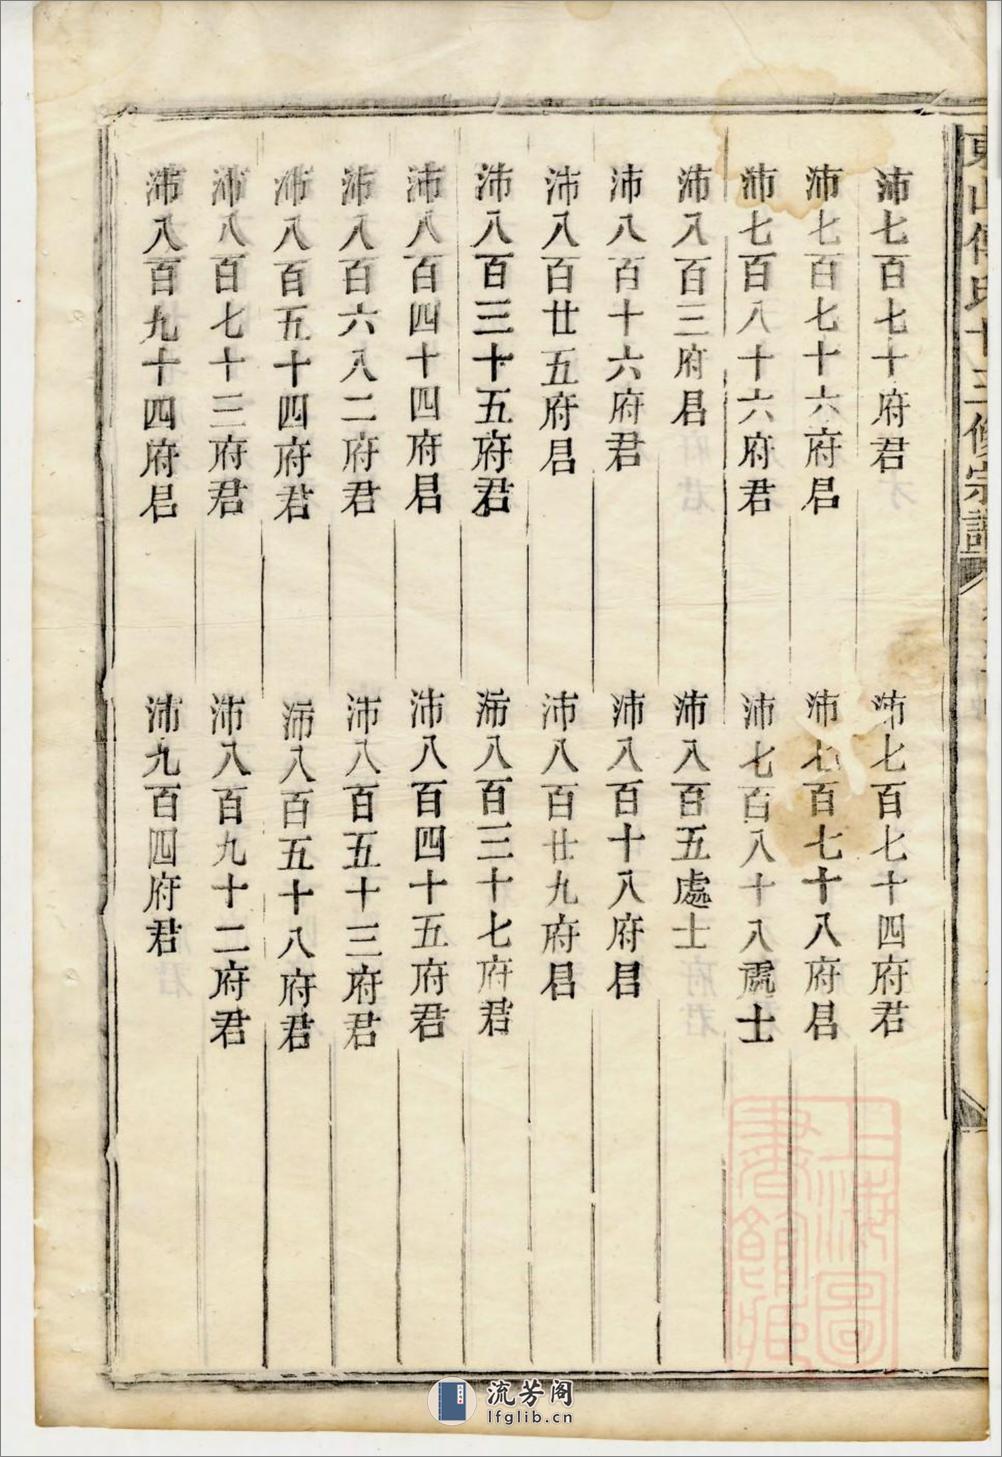 東山傅氏十三修宗譜
沛七百七十府君
沛七百七十四府君
沛七百七十六府君
沛七百七十八府君
沛七百八十六府君
沛七百八十八處士
沛八百三府君
沛八百五處士
沛八百十六府君
沛八百十八府君
沛八百廿五府君
沛八百廿九府君
沛八百三十五府君
沛八百三十七府君
沛八百四十四府君
沛八百四十五府君
沛八百六八二府君
沛八百五十三府君
沛八百五十四府君
沛八百五十八府君
沛八百七十三府君
沛八百九十二府君
沛八百九十四府君
沛九百四府君
上海圖
書館藏
流芳阁
lfglib.cn